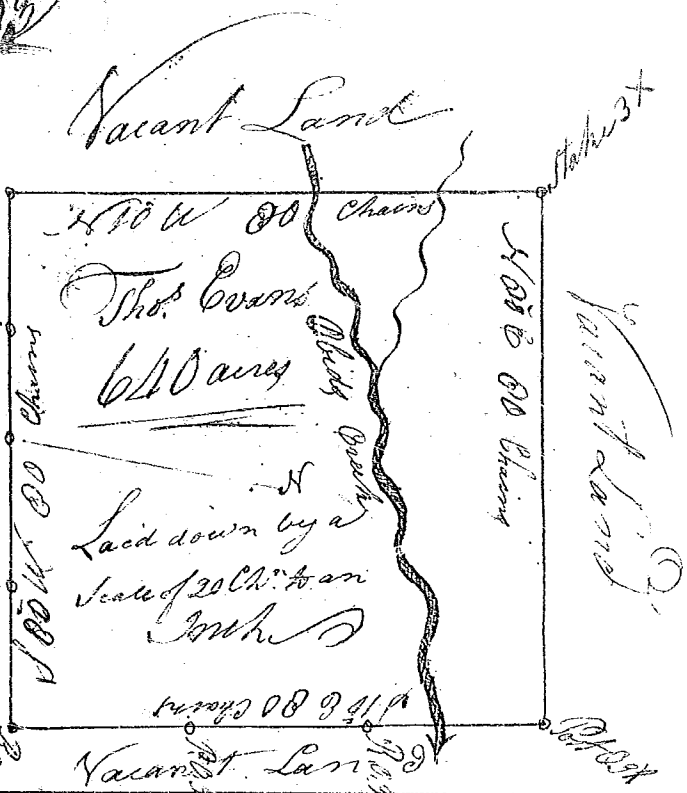 Vacant Land
Stake 3x
N 10 W 80 Chains
Thos. Evans
640 acres
Obids Creek
N 80 E 80 Chains
Vacant Land
S 80 W 80 Chains
N
Laid down by a
Scale of 20 Chs. to an
Inch
S 10 E 80 Chains
Post Oak
Vacant Land